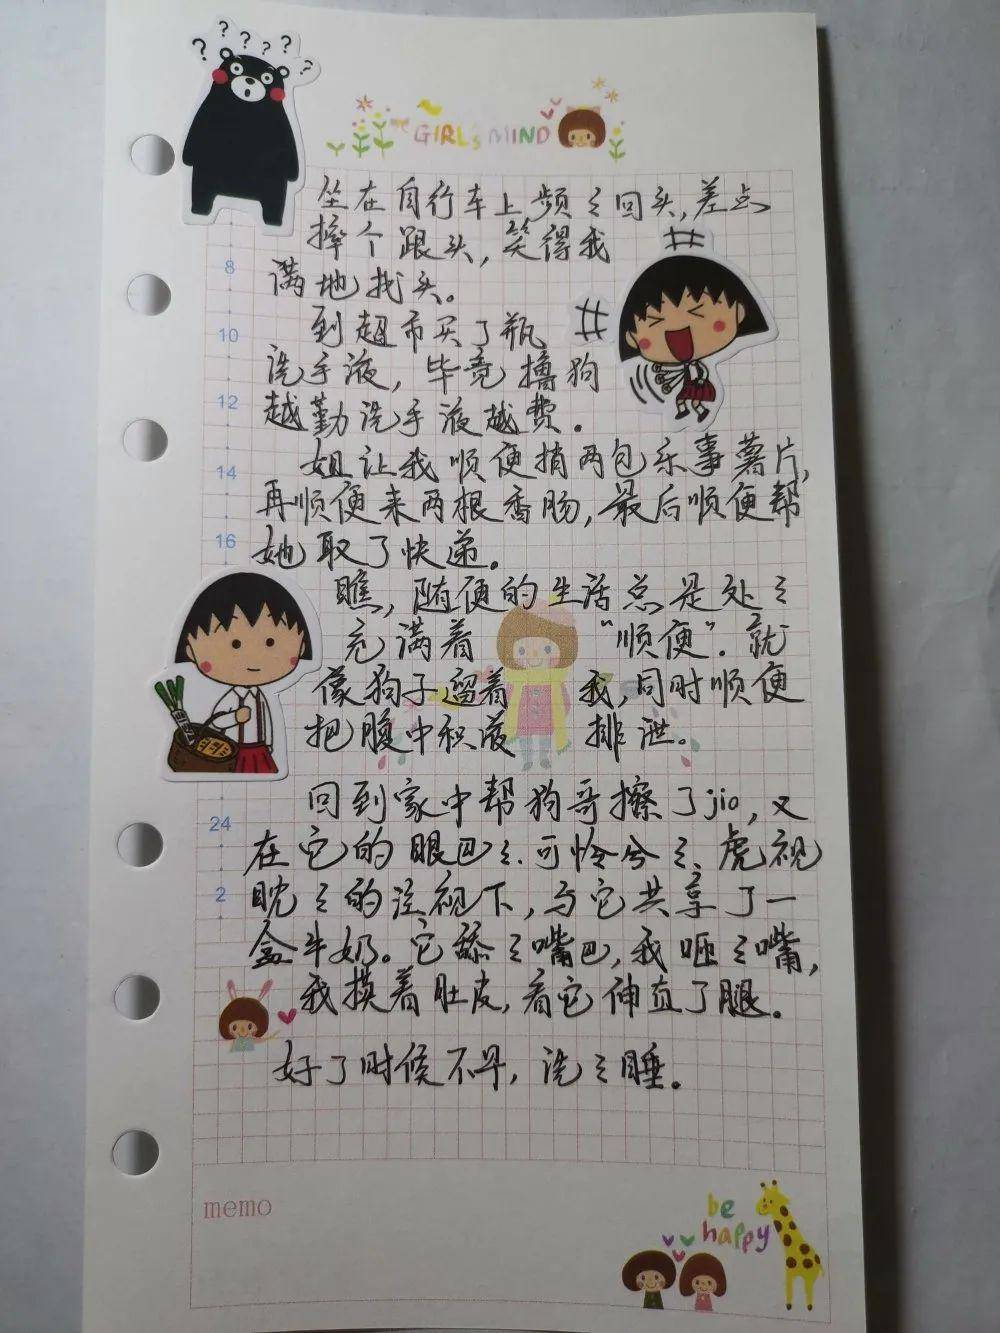 ? ? ? ? ? ?
GIRL'S MIND
坐在自行车上频々回头,差点
摔个跟头,笑得我
满地找头。
8
到超市买了瓶
10
洗手液,毕竟撸狗
12
越勤洗手液越费。
姐让我顺便捎两包乐事薯片,
14
再顺便来两根香肠,最后顺便帮
16
她取了快递。
瞧,随便的生活总是处々
充满着“顺便”.就
像狗子遛着我,同时顺便
把腹中积液排泄。
回到家中帮狗哥擦了jio,又
24
在它的眼巴々、可怜兮々、虎视
眈々的注视下,与它共享了一
2
盒牛奶。它舔々嘴巴,我咂々嘴,
我摸着肚皮,看它伸直了腿。
好了时候不早,洗々睡。
memo
be
happy